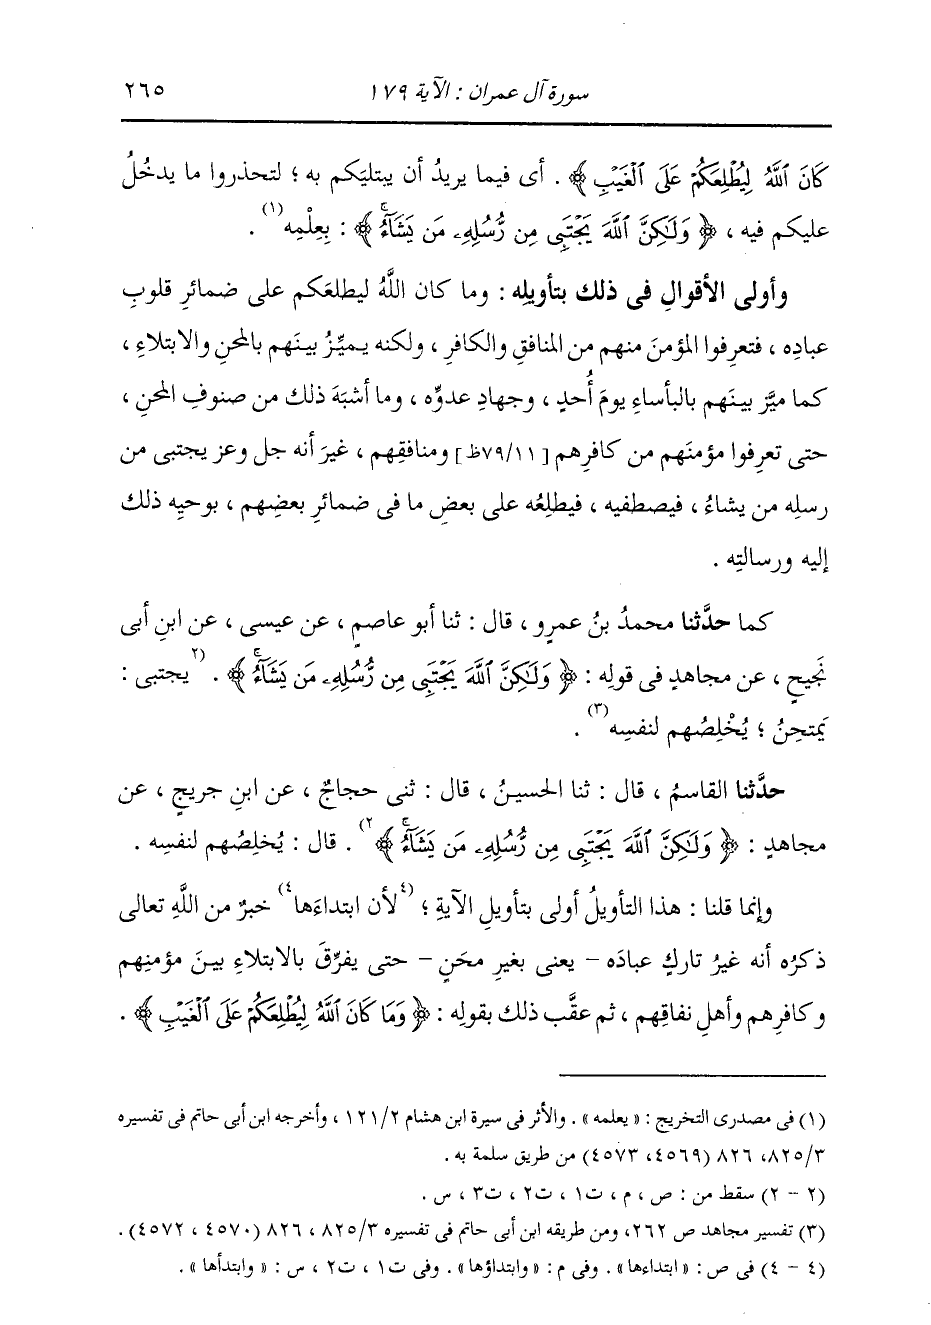 سورة آل عمران : الآية ١٧٩
٢٦٥
كَانَ ٱللَّهُ لِيُطْلِعَكُمْ عَلَى ٱلْغَيْبِ ﴾ . أى فيما يريدُ أن يبتليَكم به ؛ لتحذروا ما يدخُلُ
عليكم فيه ، ﴿ وَلَٰكِنَّ ٱللَّهَ يَجْتَبِى مِن رُّسُلِهِۦ مَن يَشَآءُۖ ﴾ : بِعلْمِه(١) .
وأولى الأقوالِ فى ذلك بتأويلِه : وما كان اللَّهُ ليطلعَكم على ضمائرِ قلوبِ
عبادِه ، فتعرِفوا المؤمنَ منهم من المنافقِ والكافرِ ، ولكنه يميِّزُ بينَهم بالمحنِ والابتلاءِ ،
كما ميَّز بينَهم بالبأساءِ يومَ أُحدٍ ، وجهادِ عدوِّه ، وما أشبَهَ ذلك من صنوفِ المحنِ ،
حتى تعرِفوا مؤمنَهم من كافرِهم [٧٩/١١ظ] ومنافقِهم ، غيرَ أنه جل وعز يجتبى من
رسلِه من يشاءُ ، فيصطفيه ، فيطلِعُه على بعضِ ما فى ضمائرِ بعضِهم ، بوحيِه ذلك
إليه ورسالتِه .
كما حدَّثنا محمدُ بنُ عمرٍو ، قال : ثنا أبو عاصمٍ ، عن عيسى ، عن ابنِ أبى
نَجيحٍ ، عن مجاهدٍ فى قولِه : ﴿ وَلَٰكِنَّ ٱللَّهَ يَجْتَبِى مِن رُّسُلِهِۦ مَن يَشَآءُۖ ﴾ . (٢يجتبى :
يَمتحِنُ ؛ يُخْلِصُهم لنفسِه(٣) .
حدَّثنا القاسمُ ، قال : ثنا الحسينُ ، قال : ثنى حجاجٌ ، عن ابنِ جريجٍ ، عن
مجاهدٍ : ﴿ وَلَٰكِنَّ ٱللَّهَ يَجْتَبِى مِن رُّسُلِهِۦ مَن يَشَآءُۖ ﴾٢) . قال : يُخلِصُهم لنفسِه .
وإنما قلنا : هذا التأويلُ أولى بتأويلِ الآيةِ ؛ (٤لأن ابتداءَها٤) خبرٌ من اللَّهِ تعالى
ذكرُه أنه غيرُ تاركٍ عبادَه – يعنى بغيرِ محَنٍ – حتى يفرِّقَ بالابتلاءِ بينَ مؤمنِهم
وكافرِهم وأهلِ نفاقِهم ، ثم عقَّب ذلك بقولِه : ﴿ وَمَا كَانَ ٱللَّهُ لِيُطْلِعَكُمْ عَلَى ٱلْغَيْبِ ﴾ .
(١) فى مصدرى التخريج : « يعلمه » . والأثر فى سيرة ابن هشام ١٢١/٢ ، وأخرجه ابن أبى حاتم فى تفسيره
٨٢٥/٣، ٨٢٦ (٤٥٦٩، ٤٥٧٣) من طريق سلمة به .
(٢ - ٢) سقط من : ص ، م ، ت١ ، ت٢ ، ت٣ ، س .
(٣) تفسير مجاهد ص ٢٦٢، ومن طريقه ابن أبى حاتم فى تفسيره ٨٢٥/٣ ، ٨٢٦ (٤٥٧٠ ، ٤٥٧٢) .
(٤ - ٤) فى ص : « ابتداءها » . وفى م : « وابتداؤها » . وفى ت١ ، ت٢ ، س : « وابتدأها » .